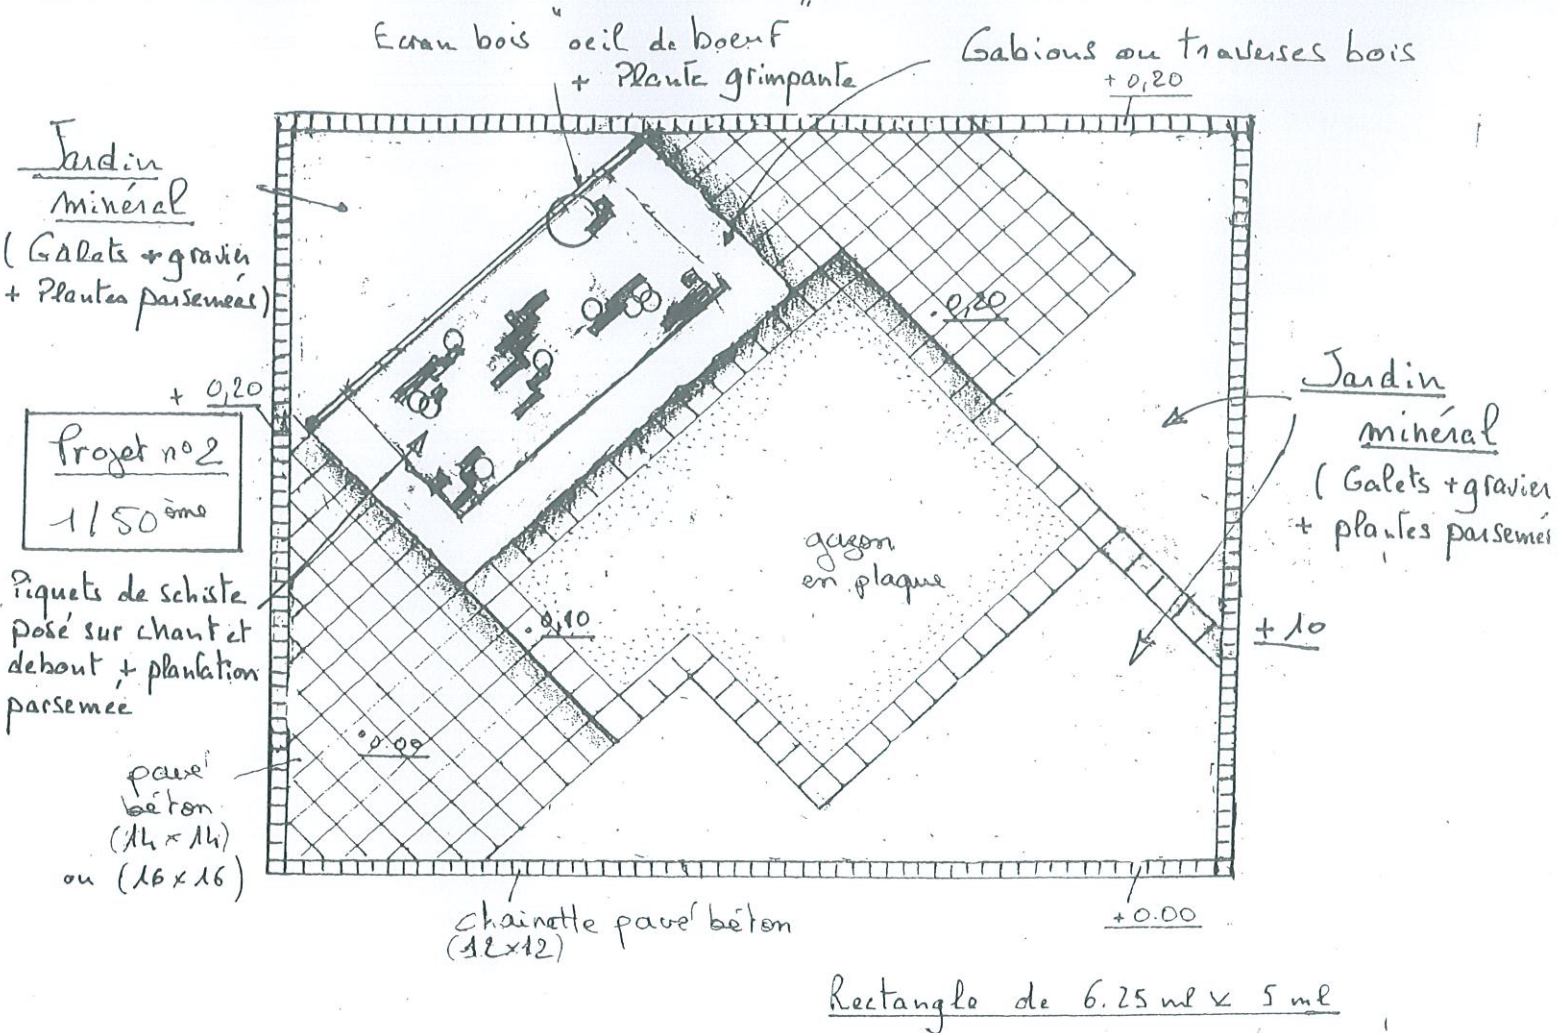 Ecran bois "oeil de boeuf"
+ Plante grimpante
Gabions ou traverses bois
+ 0,20
Jardin
minéral
(Galets + gravier
+ Plantes parsemées)
+ 0,20
Projet n°2
1/50ème
Piquets de schiste
posé sur chant et
debout + plantation
parsemée
pavé
béton
(14 x 14)
ou (16 x 16)
0,20
gazon
en plaque
0,10
0.00
Jardin
minéral
(Galets + gravier
+ plantes parsemés
+ 10
chainette pavé béton
(12x12)
+0.00
Rectangle de 6.25 ml x 5 ml